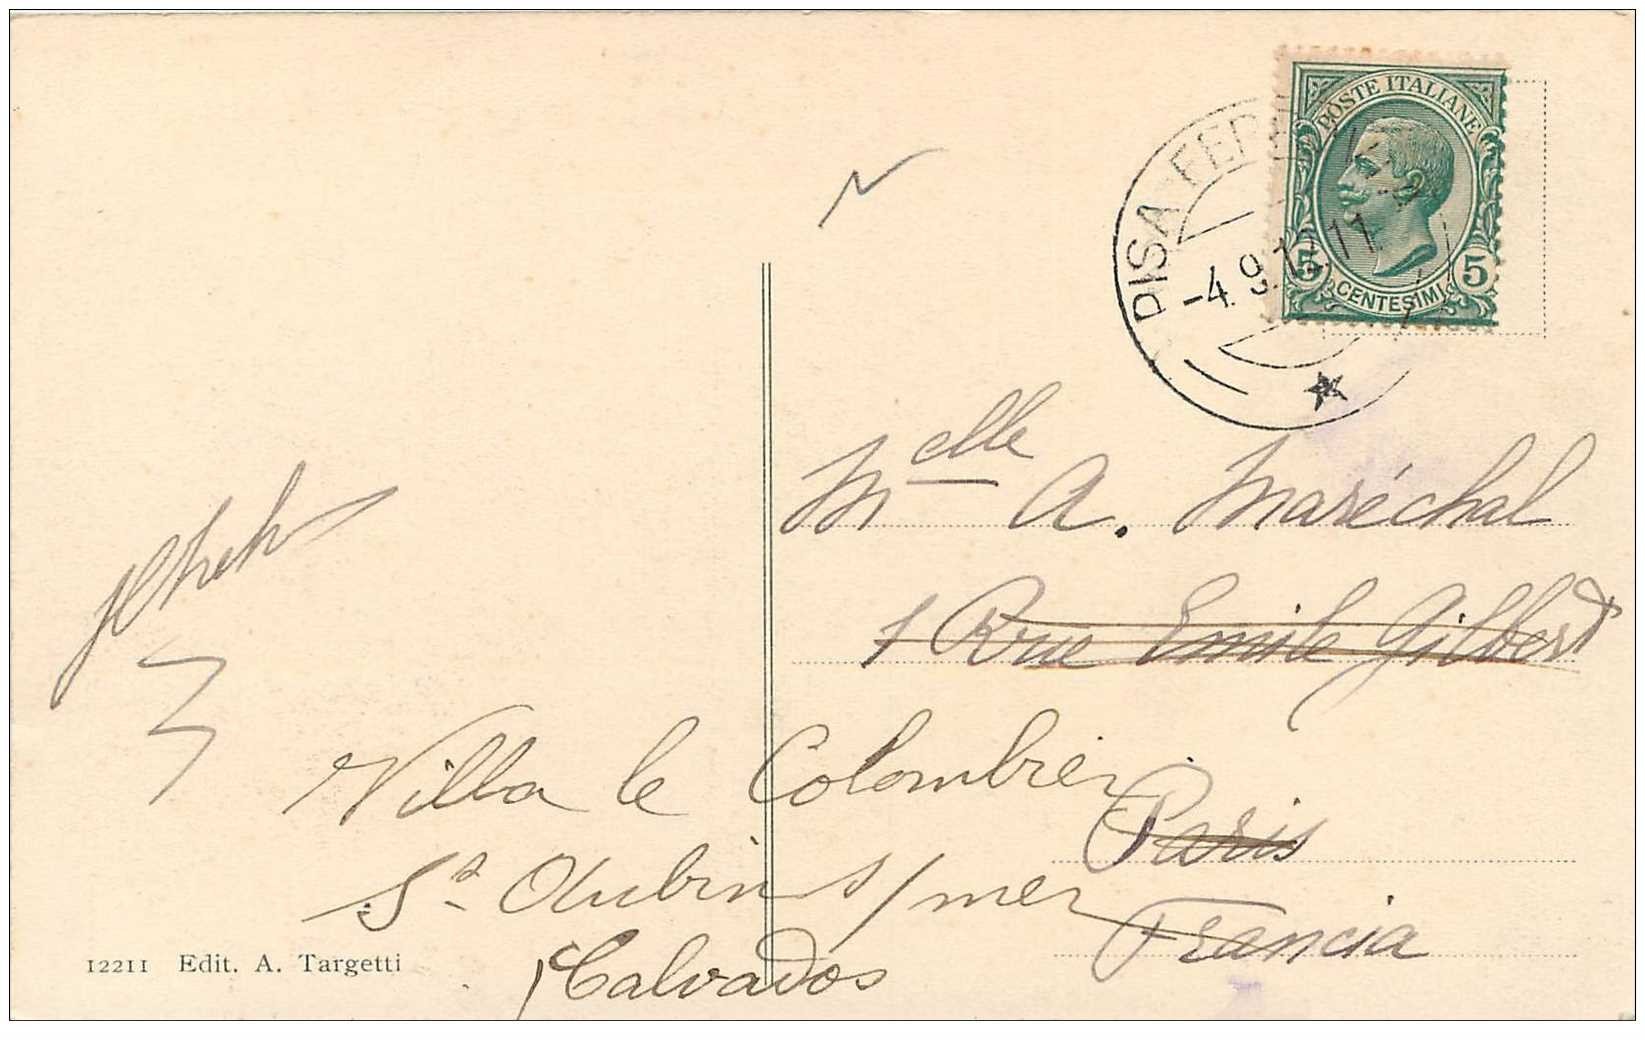 POSTE ITALIANE
5 CENTESIMI 5
PISA
-4.9.12.11
Melle A. Maréchal
1 Rue Emile Gilbert
Paris
Francia
Villa le Colombier
St Aubin s/mer
Calvados
12211 Edit. A. Targetti